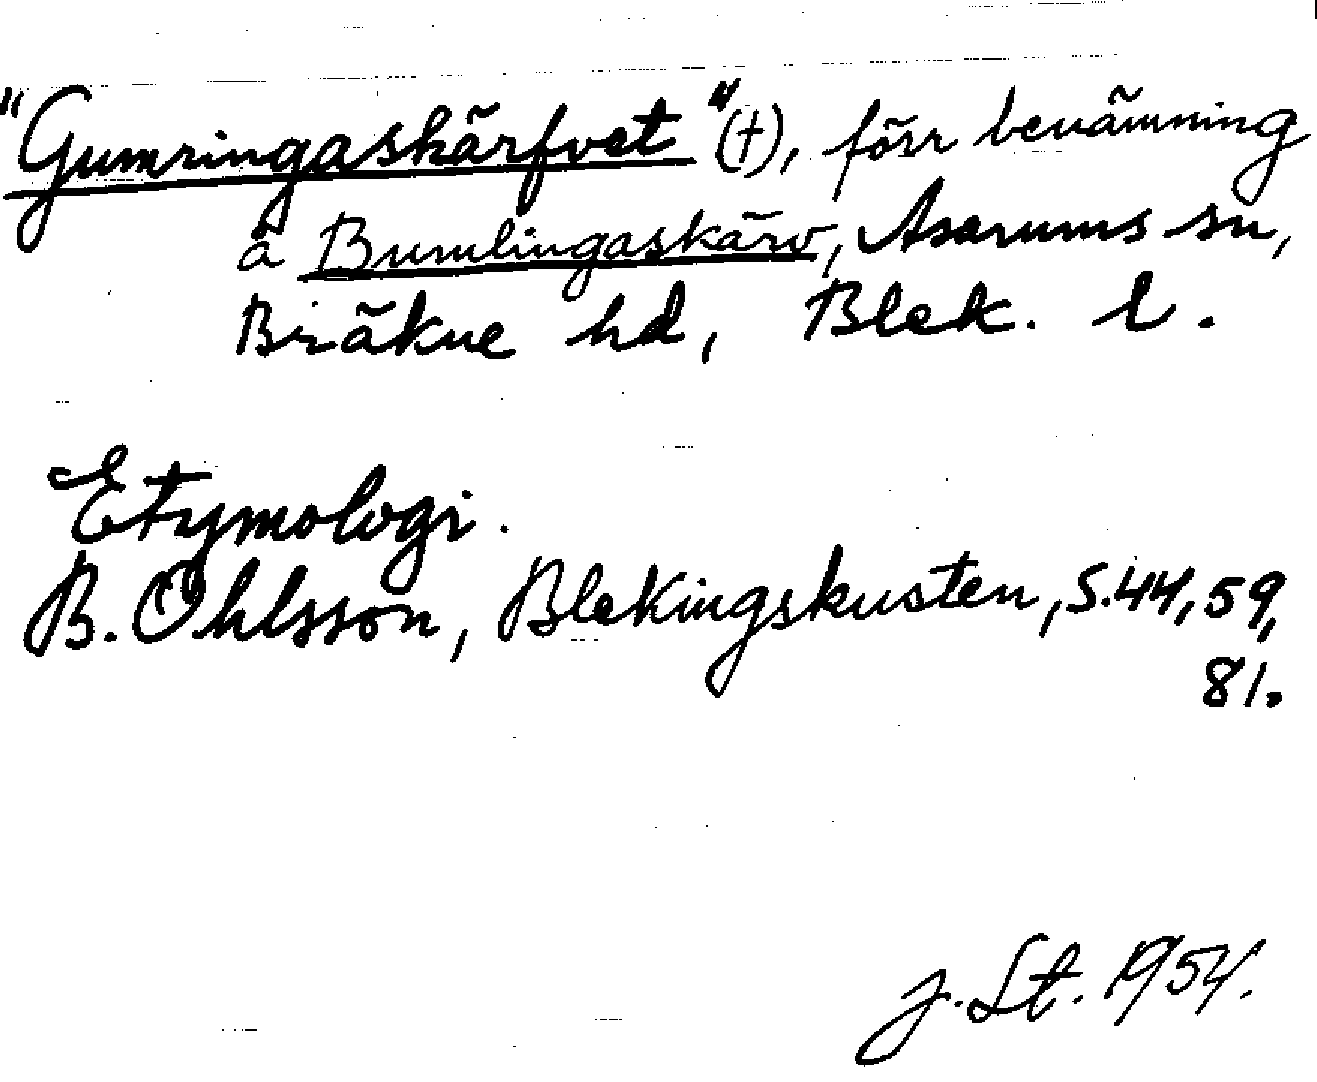 "Gumringaskärfvet" (†), förr benämning
å Bumlingaskärv, Asarums sn,
Bräkne hd, Blek. l.
Etymologi.
B. Ohlsson, Blekingskusten, S. 44, 59,
81.
J. St. 1954.